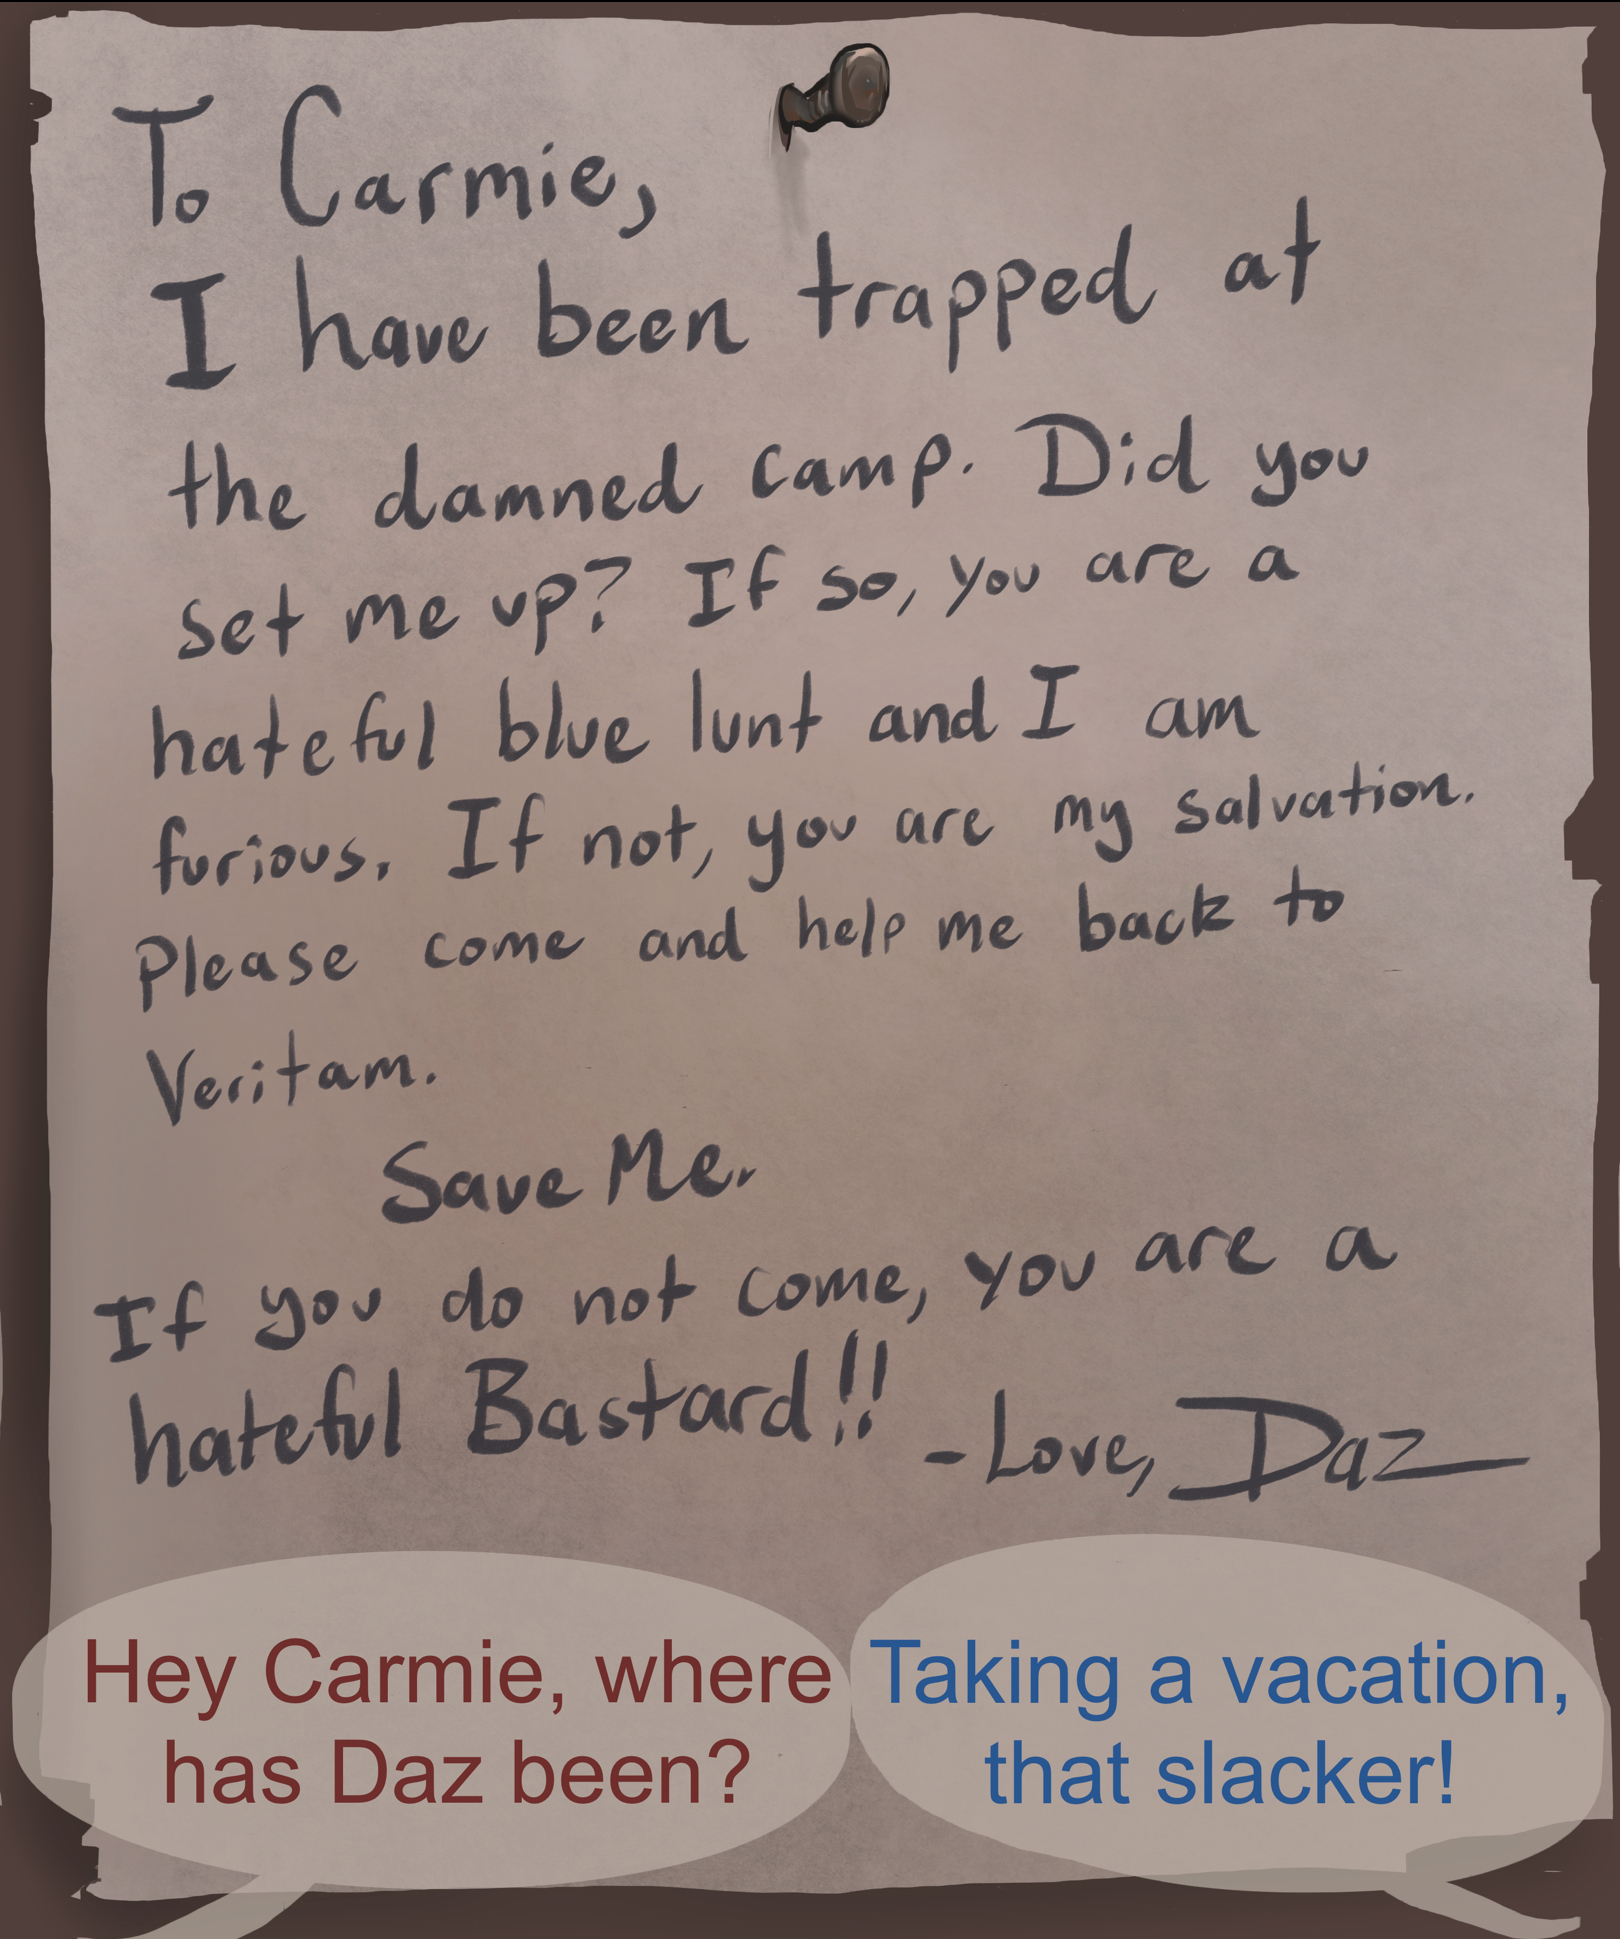 To Carmie,
I have been trapped at
the damned camp. Did you
set me up? If so, you are a
hateful blue lunt and I am
furious. If not, you are my salvation.
Please come and help me back to
Veritam.
Save Me.
If you do not come, you are a
hateful Bastard!!
-Love, Daz
Hey Carmie, where
has Daz been?
Taking a vacation,
that slacker!